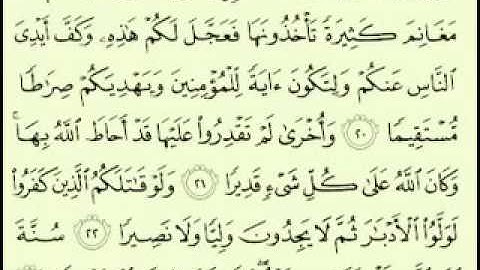 مَغَانِمَ كَثِيرَةٗ تَأۡخُذُونَهَا فَعَجَّلَ لَكُمۡ هَٰذِهِۦ وَكَفَّ أَيۡدِيَ
ٱلنَّاسِ عَنكُمۡ وَلِتَكُونَ ءَايَةٗ لِّلۡمُؤۡمِنِينَ وَيَهۡدِيَكُمۡ صِرَٰطٗا
مُّسۡتَقِيمٗا ٢٠ وَأُخۡرَىٰ لَمۡ تَقۡدِرُواْ عَلَيۡهَا قَدۡ أَحَاطَ ٱللَّهُ بِهَاۚ
وَكَانَ ٱللَّهُ عَلَىٰ كُلِّ شَيۡءٖ قَدِيرٗا ٢١ وَلَوۡ قَٰتَلَكُمُ ٱلَّذِينَ كَفَرُواْ
لَوَلَّوُاْ ٱلۡأَدۡبَٰرَ ثُمَّ لَا يَجِدُونَ وَلِيّٗا وَلَا نَصِيرٗا ٢٢ سُنَّةَ